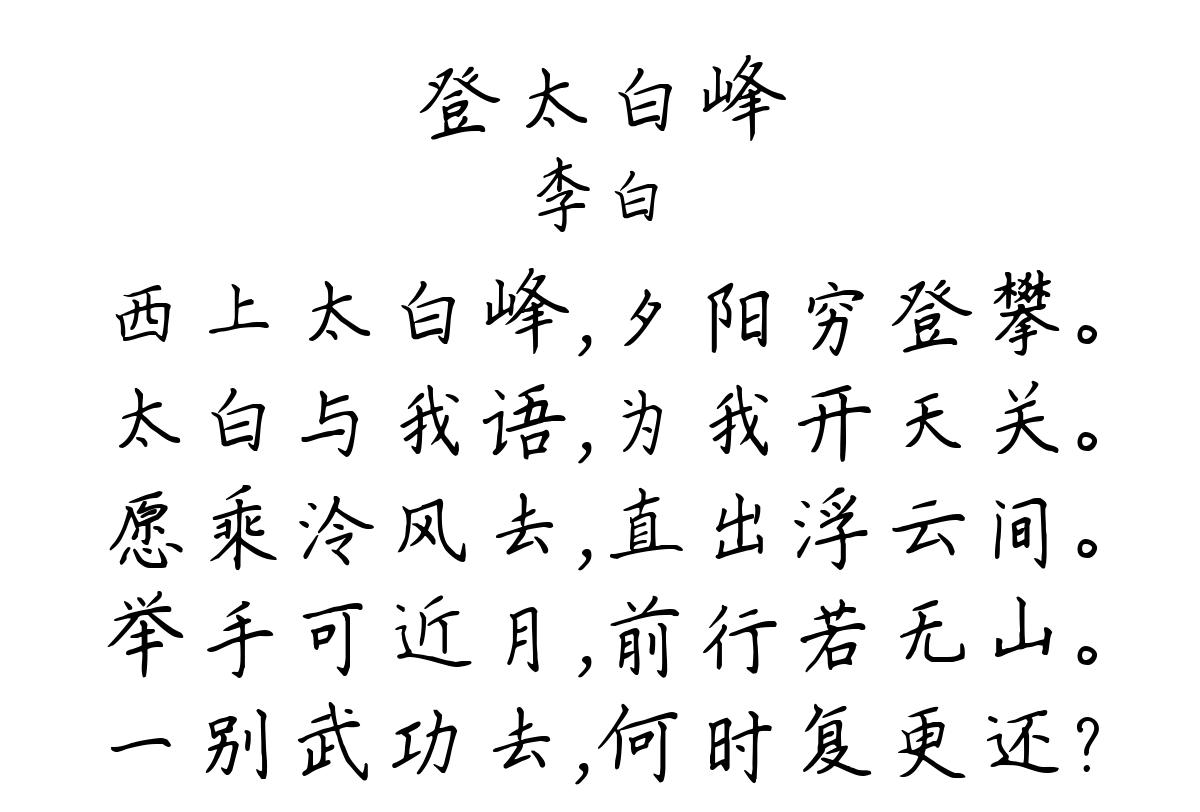 登太白峰
李白
西上太白峰,夕阳穷登攀。
太白与我语,为我开天关。
愿乘泠风去,直出浮云间。
举手可近月,前行若无山。
一别武功去,何时复更还?